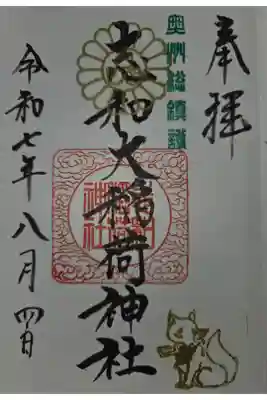 奉拝
奥州総鎮護
志和犬稲荷神社
令和七年八月四日